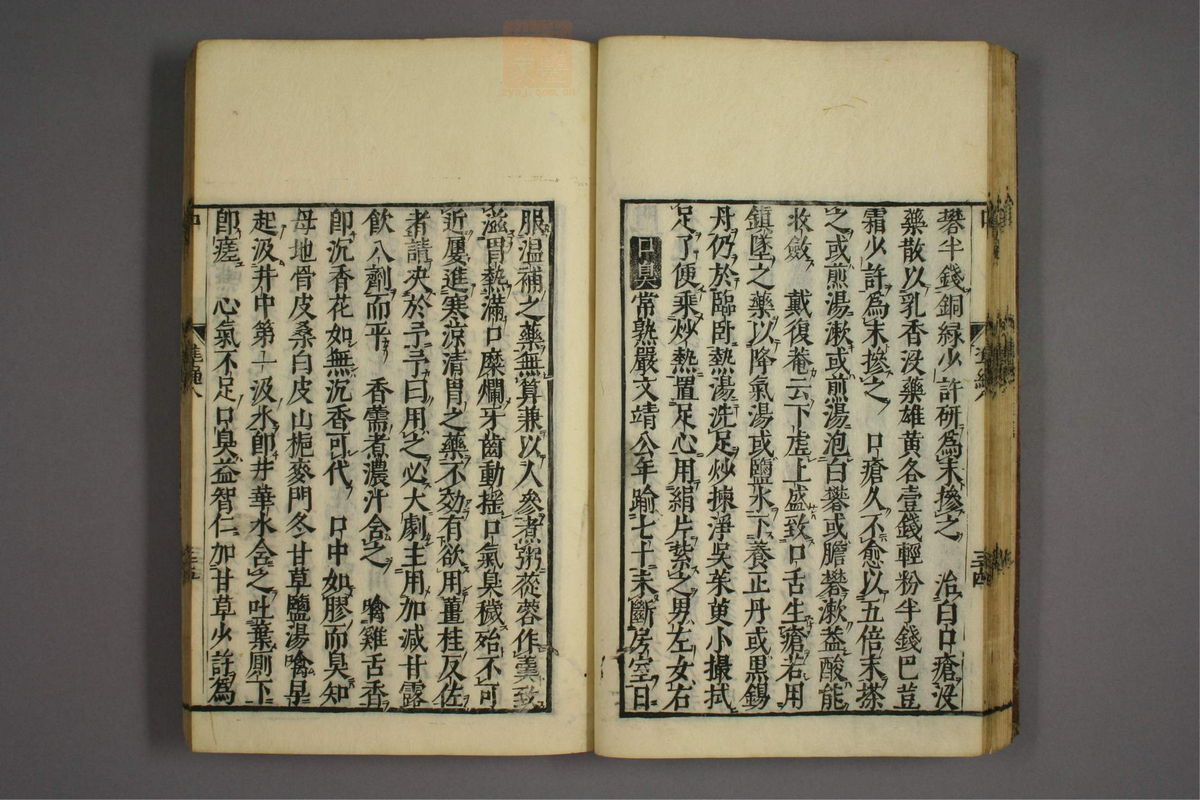 礬半錢銅緑少許研為末摻之　治白口瘡没
藥散以乳香没藥雄黄各壹錢輕粉半錢巴荳
霜少許為末摻之　口瘡久不愈以五倍末搽
之或煎湯漱或煎湯泡白礬或膽礬漱蓋酸能
收斂　戴復菴云下虚上盛致口舌生瘡若用
鎮墜之藥以降氣湯或鹽水下養正丹或黒錫
丹仍於臨卧熱湯洗足炒揀淨吳茱萸小撮拭
足了便乗炒熱置足心用絹片紮之男左女右
口臭常熟嚴文靖公年踰七十未斷房室日
服温補之藥無算兼以人參煮粥蓯蓉作羹致
滋胃熱滿口糜爛牙齒動摇口氣臭穢殆不可
近屢進寒涼清胃之藥不効有欲用薑桂反佐
者請决於予予曰用之必大劇主用加减甘露
飲入劑而平　香薷煮濃汁含之　噙雞舌香
即沉香花如無沉香可代　口中如膠而臭知
母地骨皮桑白皮山梔麥門冬甘草鹽湯噙早
起汲井中第一汲水即井華水含之吐棄厠下
即瘥　心氣不足口臭益智仁加甘草少許為